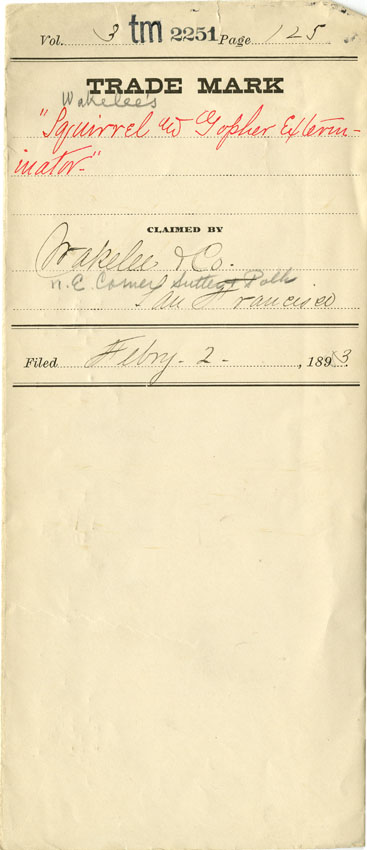 Vol. 3 tm 2251 Page 125
TRADE MARK
Wakelee's
"Squirrel and Gopher Exterm-
inator."
CLAIMED BY
Wakelee & Co.
N.E. Corner Sutter & Polk
San Francisco
Filed Febry. 2. , 1893.